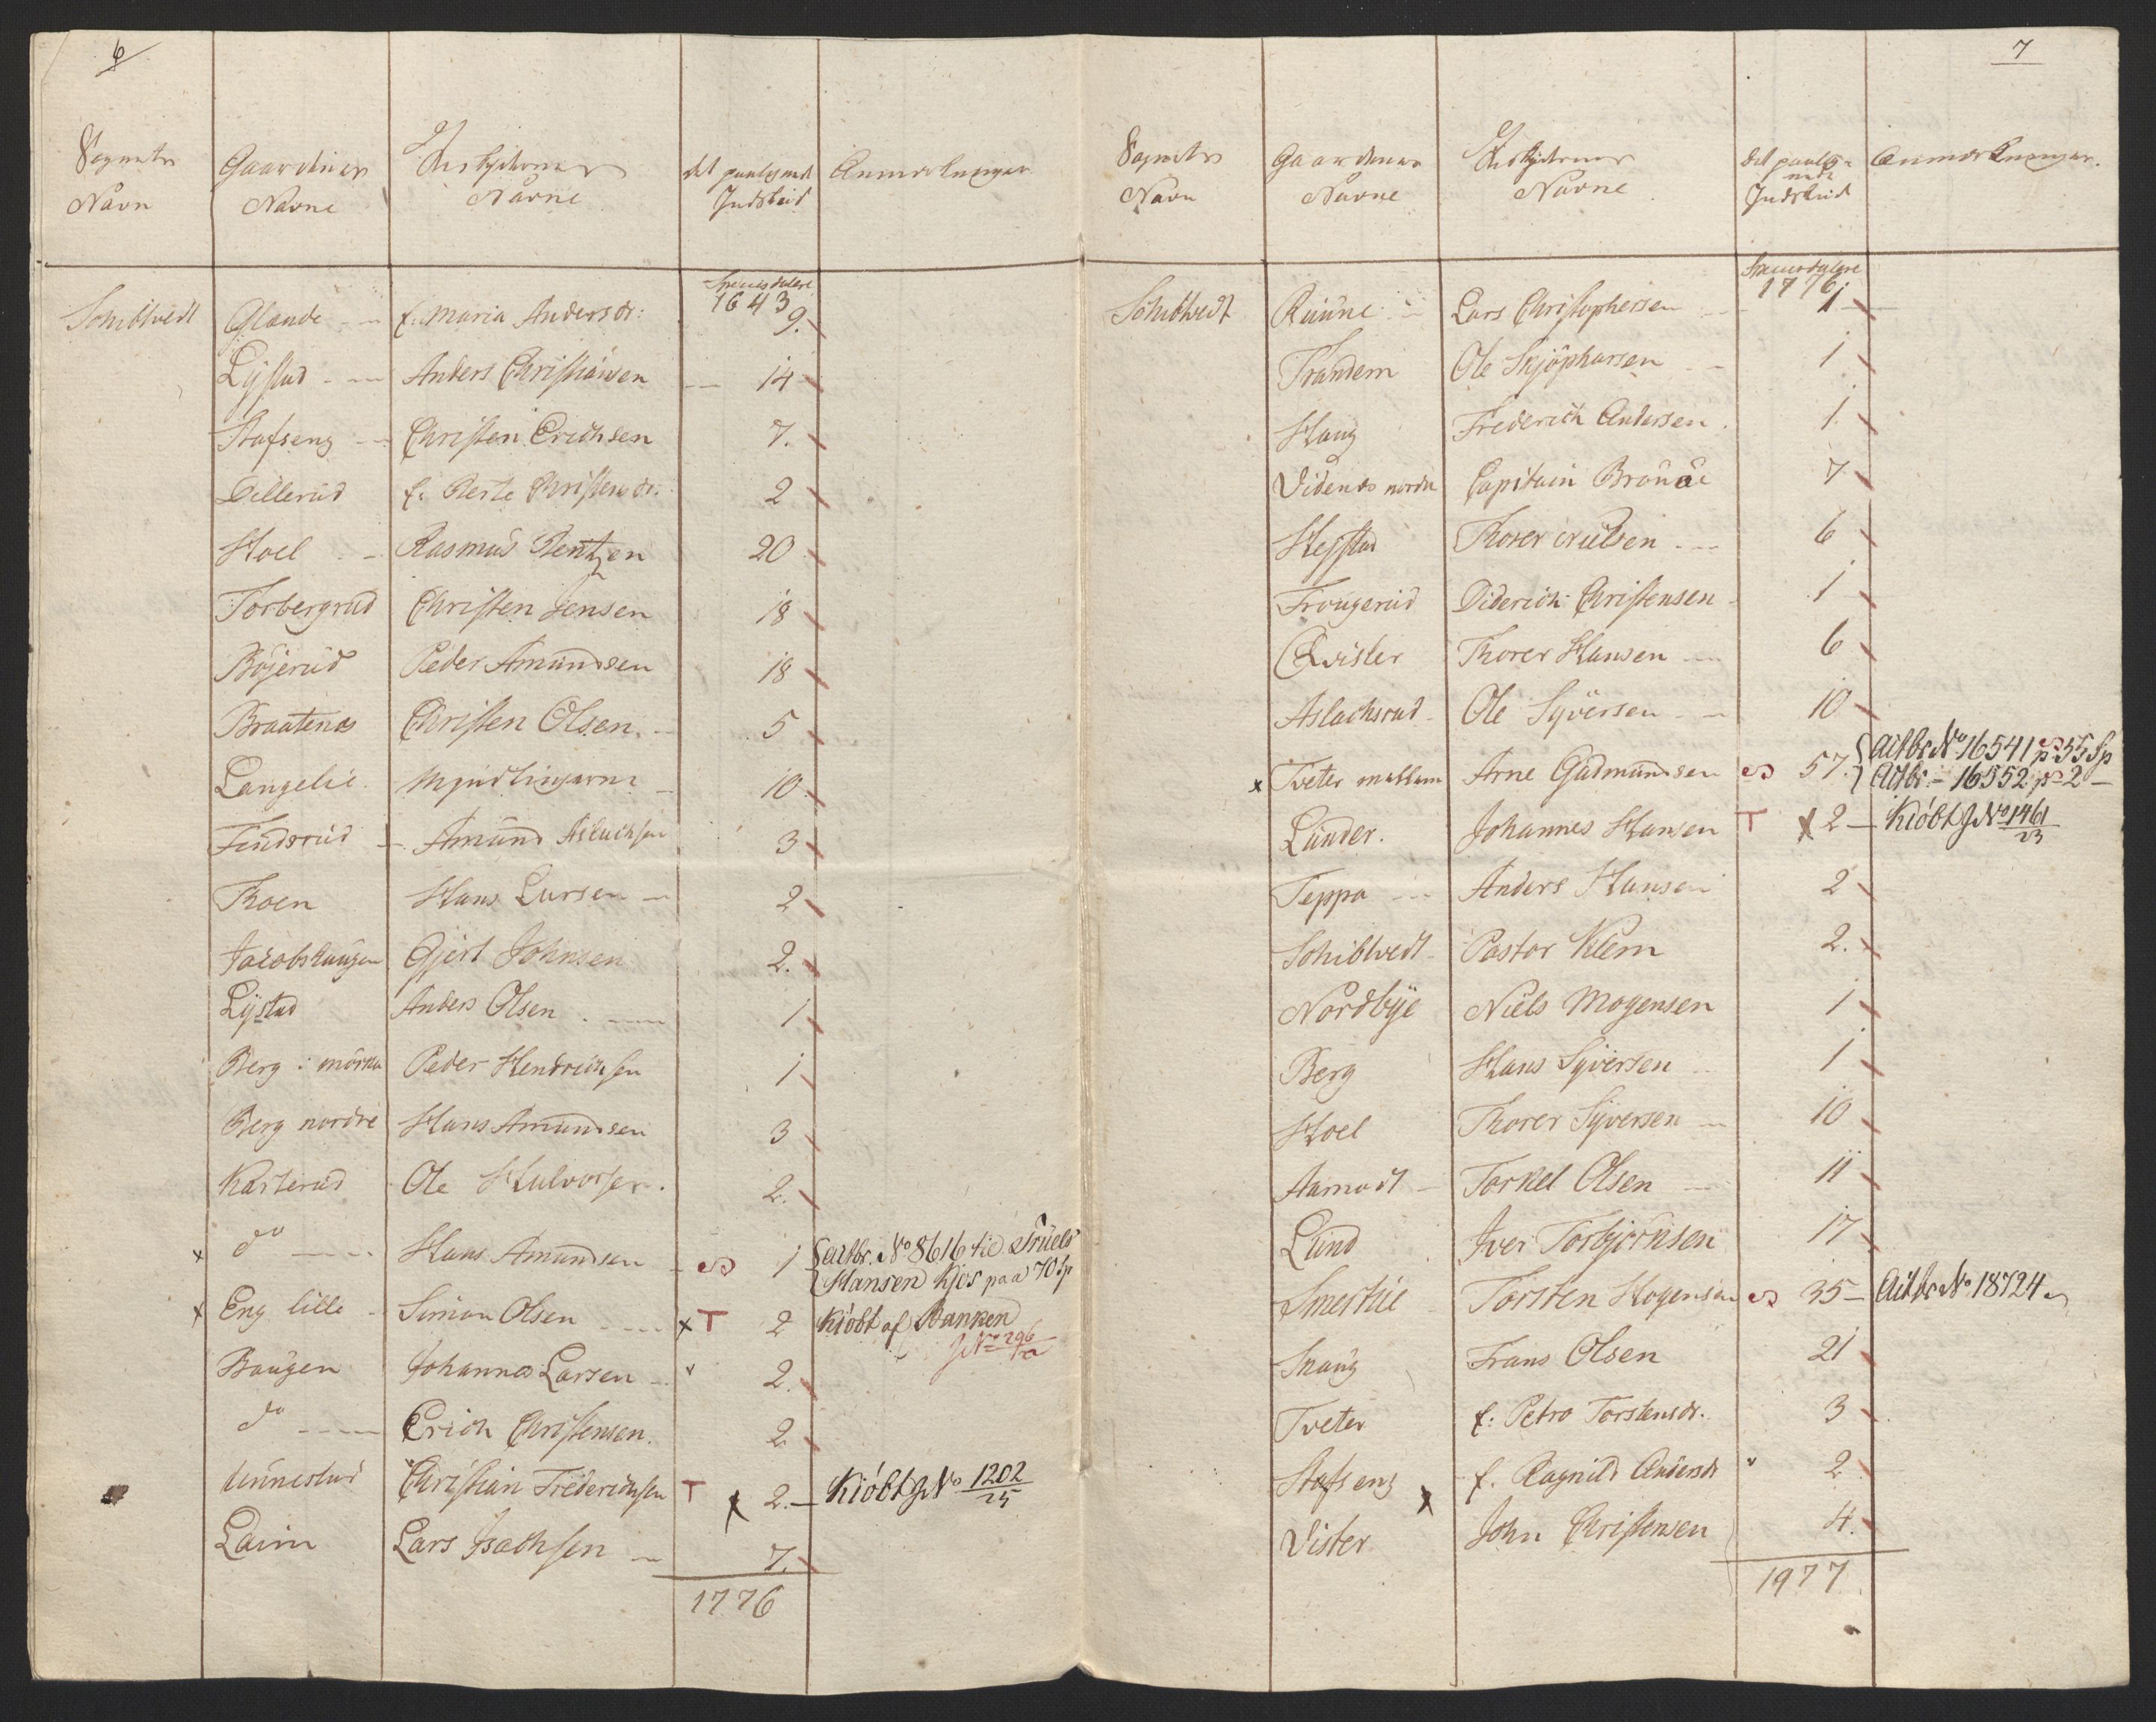 6
Sognets Navn
Gaardenes Navne
Beskydernes Navne
det paalignede Indskud
Anmærkninger
Speciesdaler
1643
Schibtvedt Glande f: Maria Andersdr: 9.
Lystad Anders Christiansen 14
Stafseng Christen Erichsen 7.
Dillerud f: Berte Christensdr: 2
Hoel Rasmus Bentzen 20
Torbergrud Christen Jensen 18
Böjerud Peder Amundsen 18
Braatenes Christen Olsen 5
Langelie Myndlingerne 10
Findsrud Amund Aslachsen 3
Thoen Hans Larsen 2
Jacobshaugen Gjert Johnsen 2.
Lystad Anders Olsen 1
Berg i mörken Peder Hendrichsen 1
Berg nordre Hans Amundsen 3
Kasterud Ole Halvorsen 2.
x do Hans Amundsen 1 Actbr. No 8616 til Truels
Hansen Kjos paa 70 Sp
x Eng lille Simon Olsen x T 2 Kiöbt af Banken
JNo 296/a
Baugen Johannes Larsen 2.
do Erich Christensen. 2
Unnestad Christian Friderichsen T x 2.- Kiöbt JNo 1202/25
Laim Lars Isachsen 7.
1776
7
Sognets Navn
Gaardenes Navne
Beskydernes Navne
det paalignede Indskud
Anmærkninger.
Speciesdaler
1776
Schibtvedt Ruune Lars Christophersen 1
Trandem Ole Skjöphorsen 1
Haug Frederich Andersen 1.
Videnes nordre Capitain Braune 7
Hegstad Thorer Nielsen 6
Frougerud Diderich Christensen 1
Qvister Thorer Hansen 6
Aslachsrud Ole Syversen 10
x Tveter mellem Arne Gudmundsen 57. Actbr No 16541 p 55 Sp
Actbr - 16552 p 2 -
Lunder. Johannes Hansen T x 2 - Kiöbt JNo 1461/23
Teppa Anders Hansen 2
Schibtvedt Pastor Klem 2.
Nordbye Niels Mogensen 1
Berg Hans Syversen 1
Hoel Thorer Syversen 10
Aamodt Torkel Olsen 11
Lund Iver Torbjörnsen 17
Smerthie Torsten Hogensen 35 - Actbr No 18724
Skaug Frans Olsen 21
Tveter f: Petro Torstensdr. 3
Stafseng f. Ragnild Andersdr 2
Vister x John Christensen 4.
1977